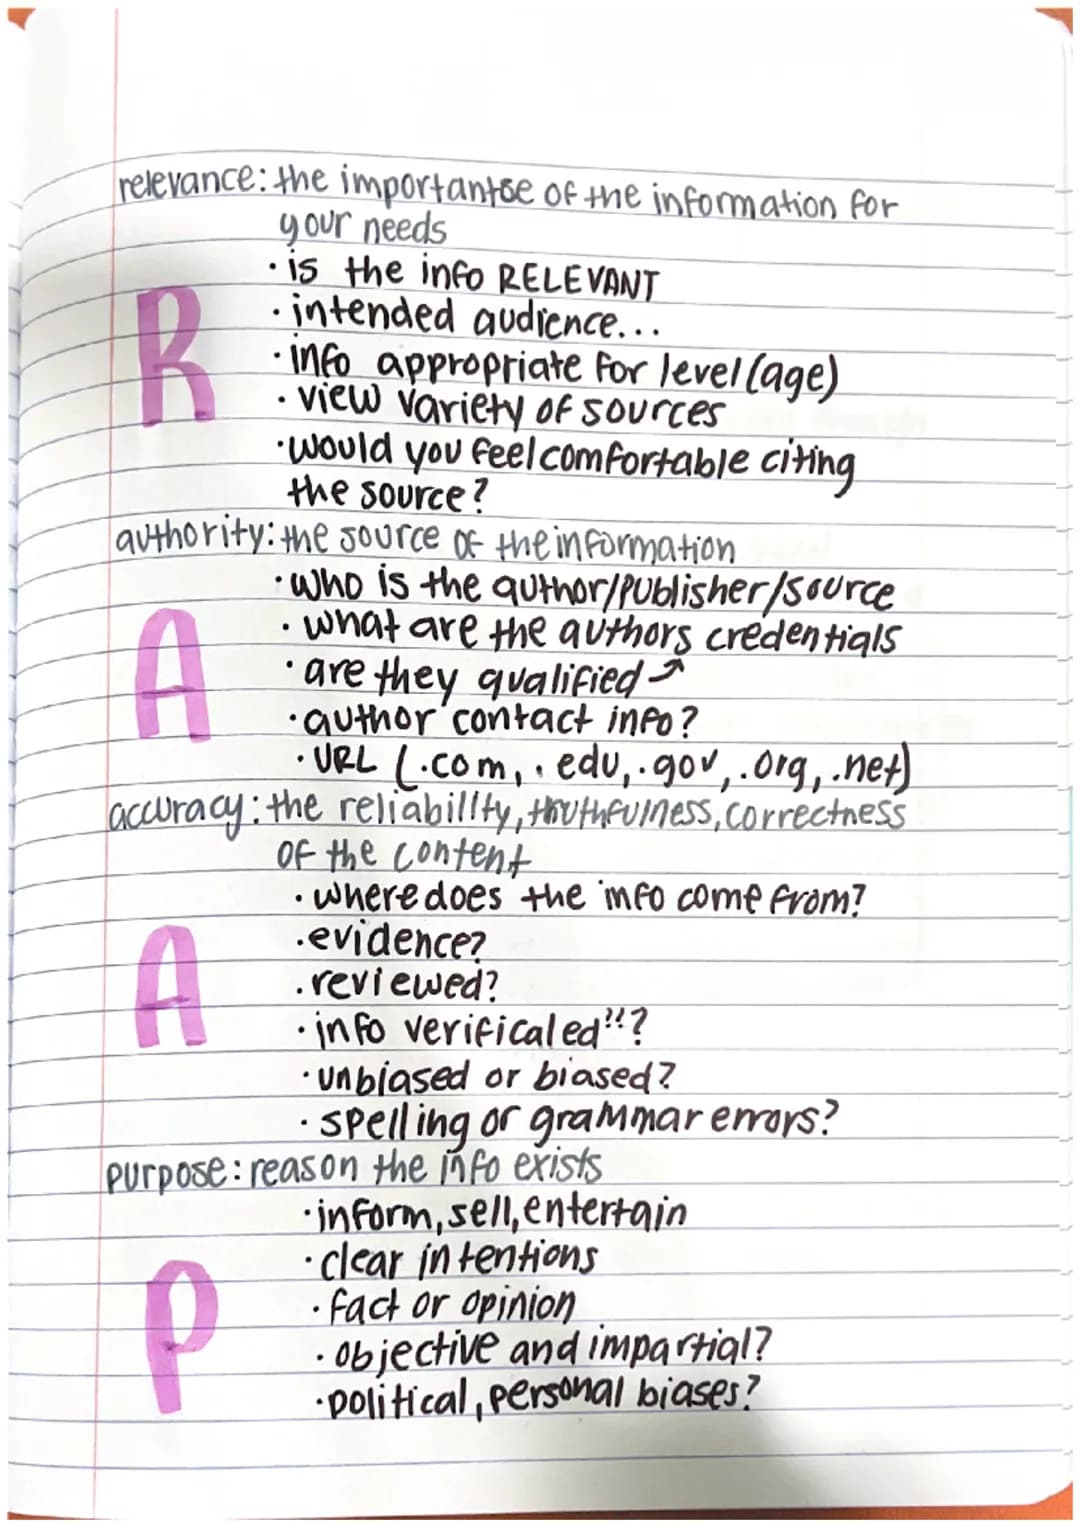 relevance: the importantse of the information for
your needs
· is the info RELEVANT
· intended audience...
R
· info appropriate for level (age)
· view variety of sources
· would you feel comfortable citing
the source?
authority: the source of the information
· who is the author/publisher/source
· what are the authors credentials
A
· are they qualified ↗
· author contact info?
· URL (.com, .edu, .gov, .org, .net)
accuracy: the reliability, truthfulness, correctness
of the content
· where does the info come from?
A
· evidence?
· reviewed?
· info verificaled"?
· unbiased or biased?
· spelling or grammar errors?
purpose: reason the info exists
· inform, sell, entertain
· clear intentions
P
· fact or opinion
· objective and impartial?
· political, personal biases?